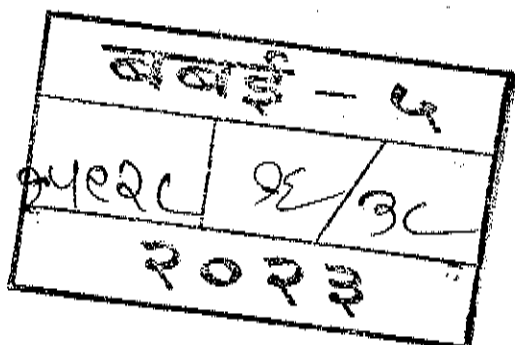 बबई - ५
२५९२८ १६/३८
२०२३